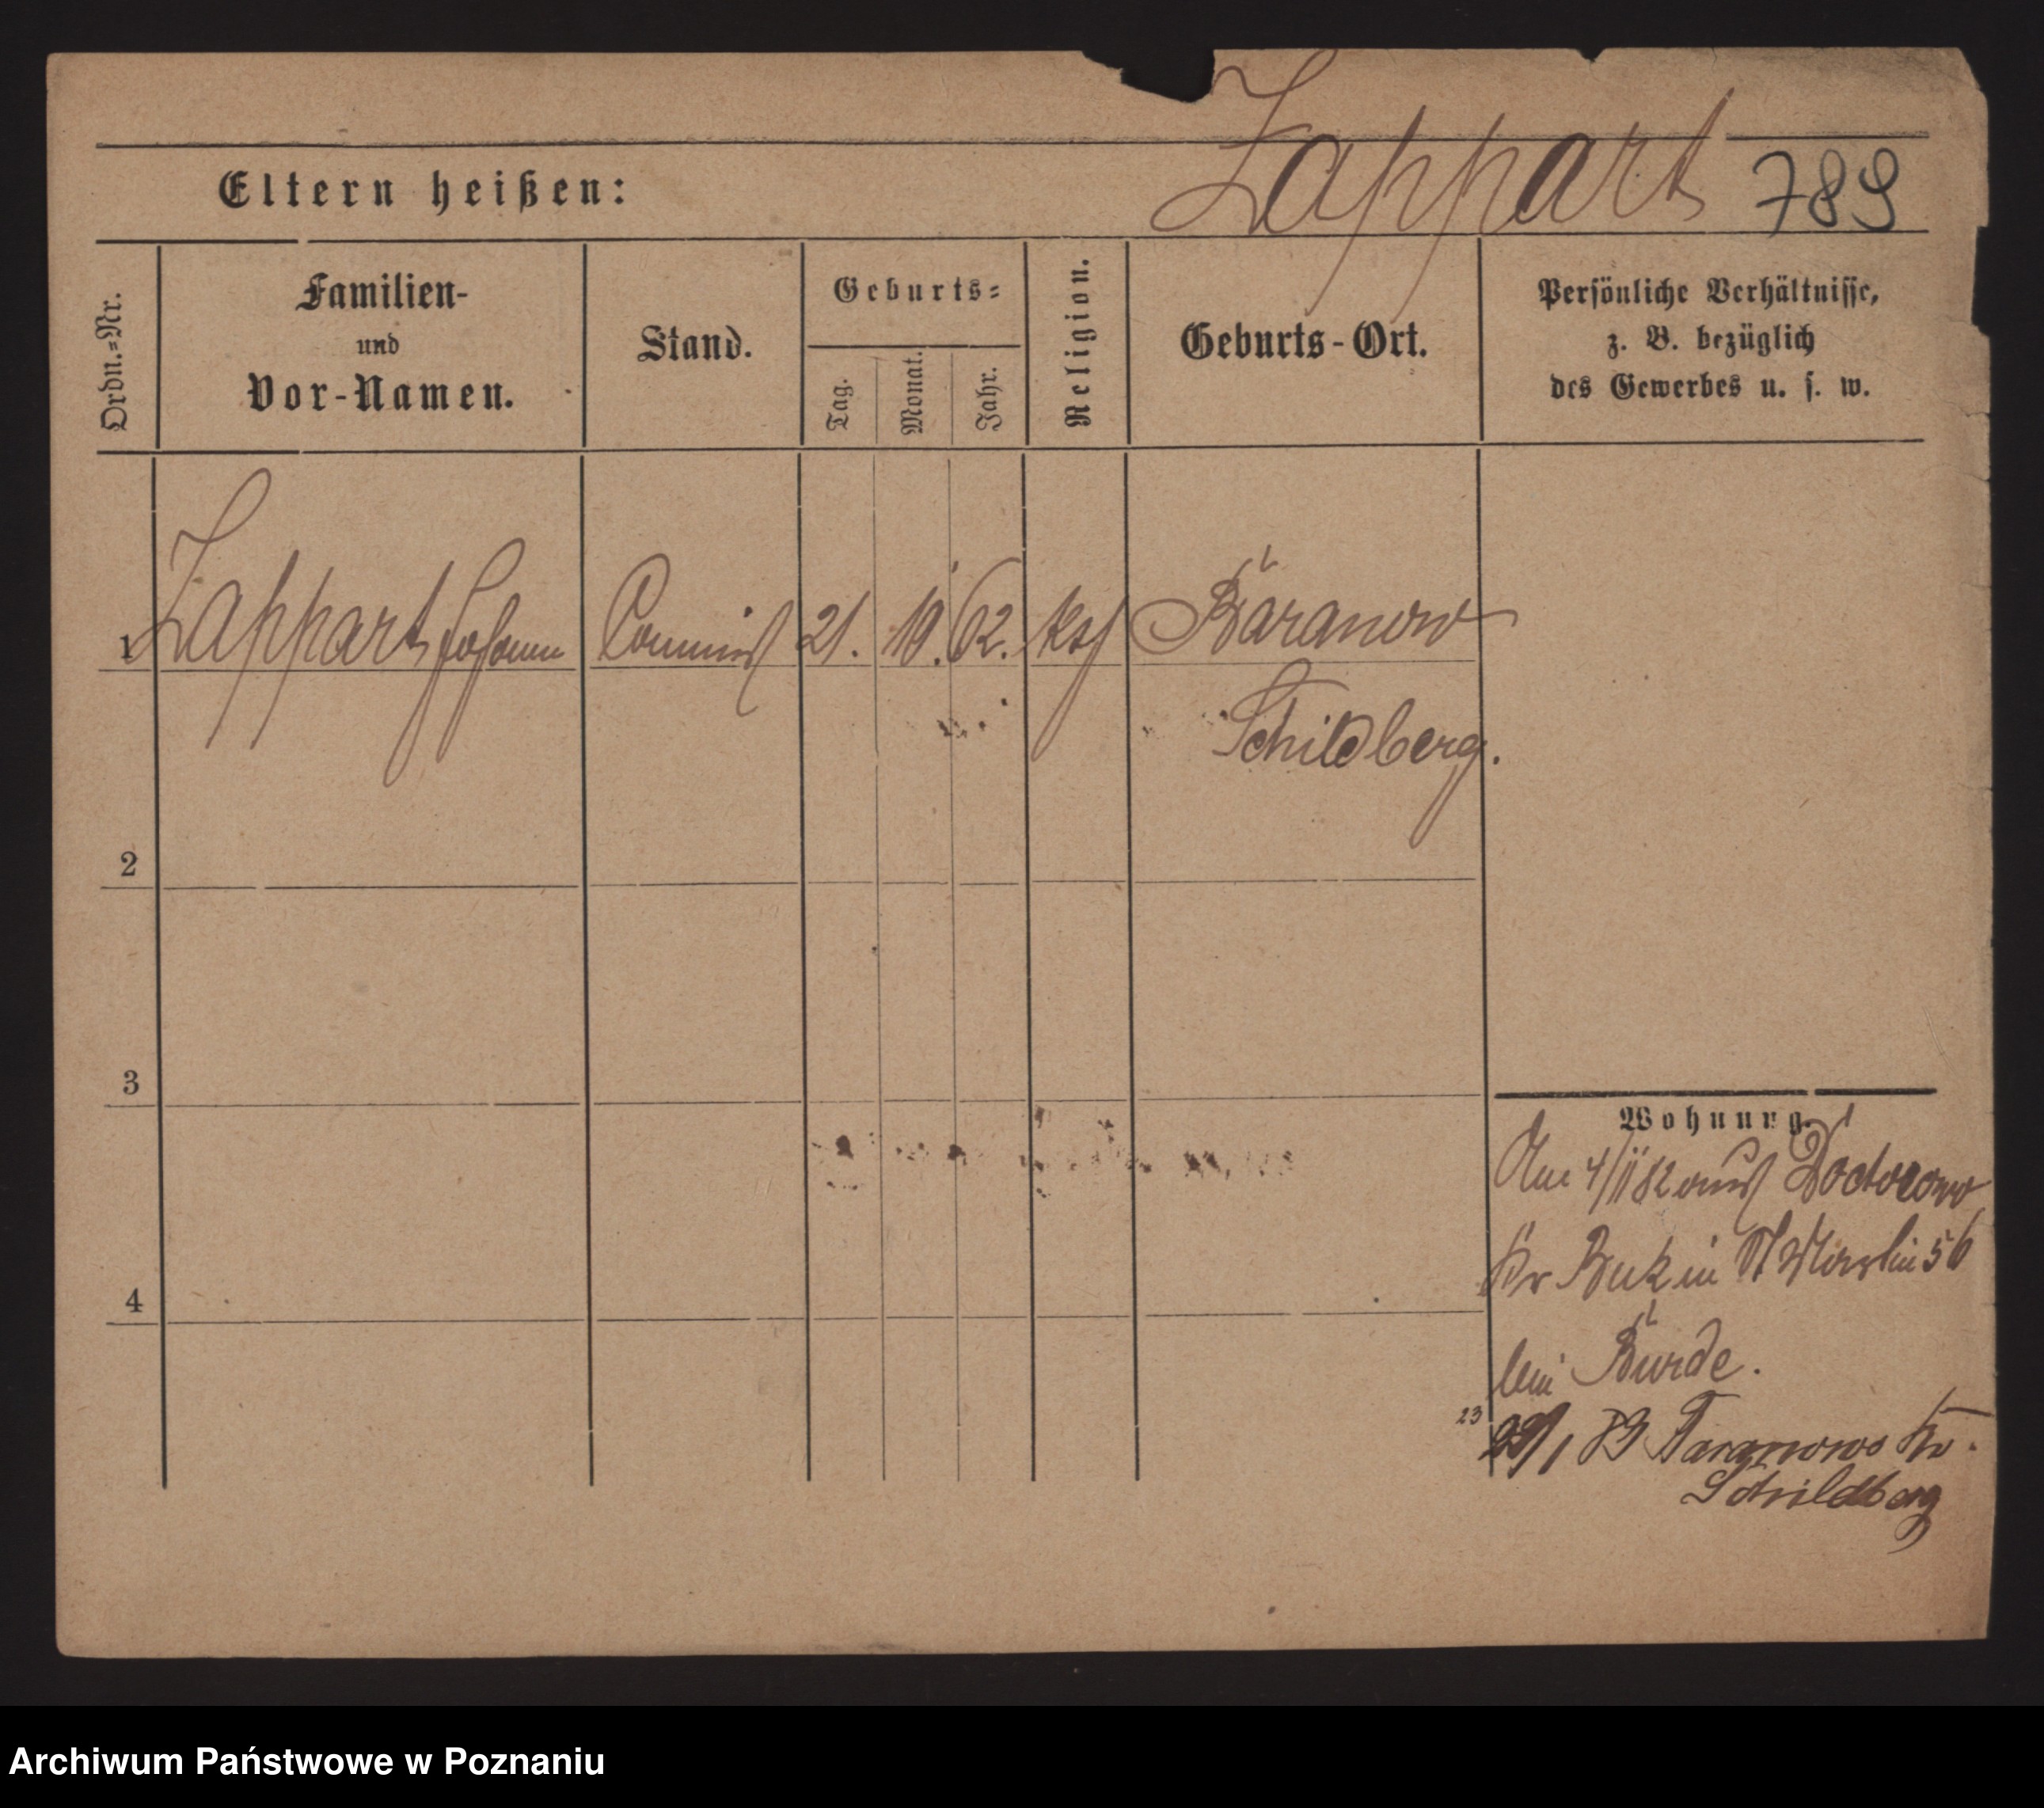 Zappart 789
Eltern heißen:
Ordn.=Nr.
Familien-
und
Vor-Namen.
Stand.
Geburts=
Tag.
Monat.
Jahr.
Religion.
Geburts-Ort.
Persönliche Verhältnisse,
z. B. bezüglich
des Gewerbes u. s. w.
1 Zappart Johann Commis 21. 10. 62. kath Baranow
Schildberg.
2
3
4
Wohnung.
Am 4/11 82 aus Doctorowo
Kr Buk in St Martin 56
bei Burde.
23
/1 83 Baranowo Kr.
Schildberg
Archiwum Państwowe w Poznaniu